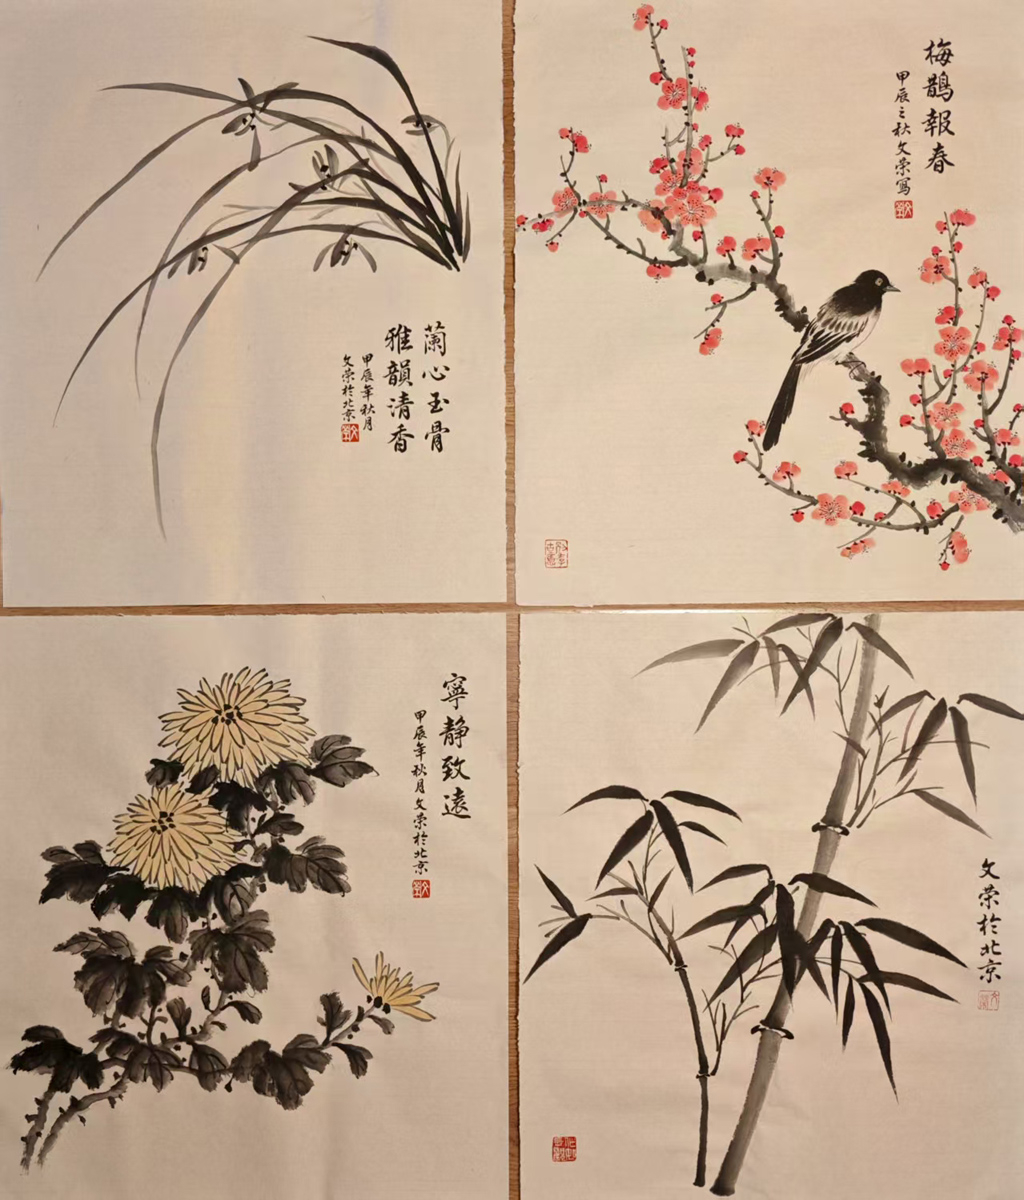 蘭心玉骨
雅韻清香
甲辰年秋月
文荣於北京
梅鵲報春
甲辰之秋文荣寫
寧静致遠
甲辰年秋月文荣於北京
文荣於北京